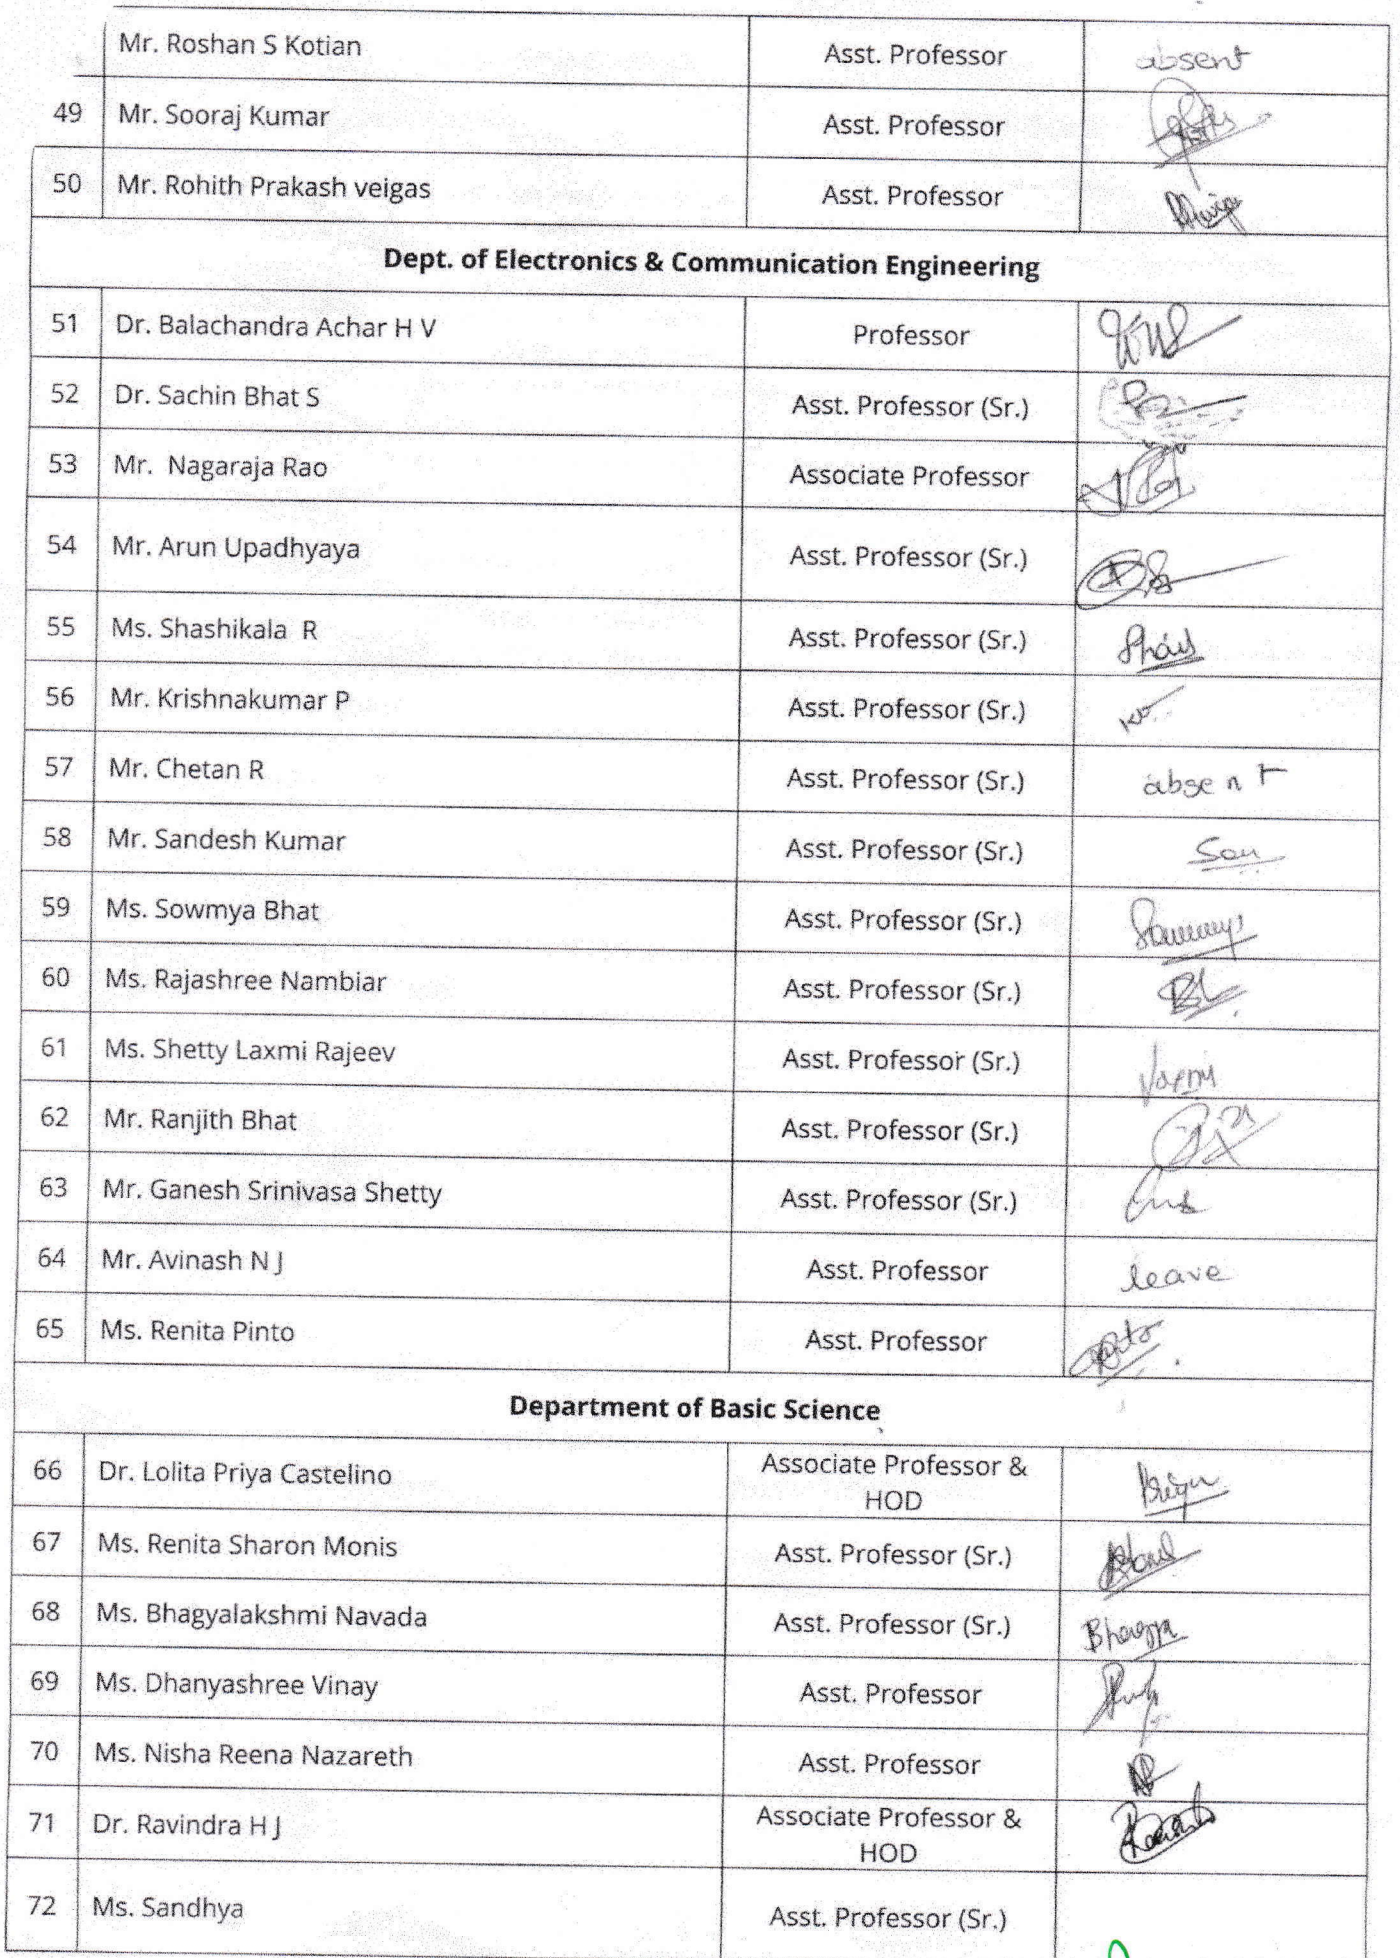 Mr. Roshan S Kotian Asst. Professor absent
49 Mr. Sooraj Kumar Asst. Professor
50 Mr. Rohith Prakash veigas Asst. Professor
Dept. of Electronics & Communication Engineering
51 Dr. Balachandra Achar H V Professor
52 Dr. Sachin Bhat S Asst. Professor (Sr.)
53 Mr. Nagaraja Rao Associate Professor
54 Mr. Arun Upadhyaya Asst. Professor (Sr.)
55 Ms. Shashikala R Asst. Professor (Sr.)
56 Mr. Krishnakumar P Asst. Professor (Sr.)
57 Mr. Chetan R Asst. Professor (Sr.) absent
58 Mr. Sandesh Kumar Asst. Professor (Sr.)
59 Ms. Sowmya Bhat Asst. Professor (Sr.)
60 Ms. Rajashree Nambiar Asst. Professor (Sr.)
61 Ms. Shetty Laxmi Rajeev Asst. Professor (Sr.)
62 Mr. Ranjith Bhat Asst. Professor (Sr.)
63 Mr. Ganesh Srinivasa Shetty Asst. Professor (Sr.)
64 Mr. Avinash N J Asst. Professor leave
65 Ms. Renita Pinto Asst. Professor
Department of Basic Science
66 Dr. Lolita Priya Castelino Associate Professor &
HOD
67 Ms. Renita Sharon Monis Asst. Professor (Sr.)
68 Ms. Bhagyalakshmi Navada Asst. Professor (Sr.) Bhagya
69 Ms. Dhanyashree Vinay Asst. Professor
70 Ms. Nisha Reena Nazareth Asst. Professor
71 Dr. Ravindra H J Associate Professor &
HOD
72 Ms. Sandhya Asst. Professor (Sr.)